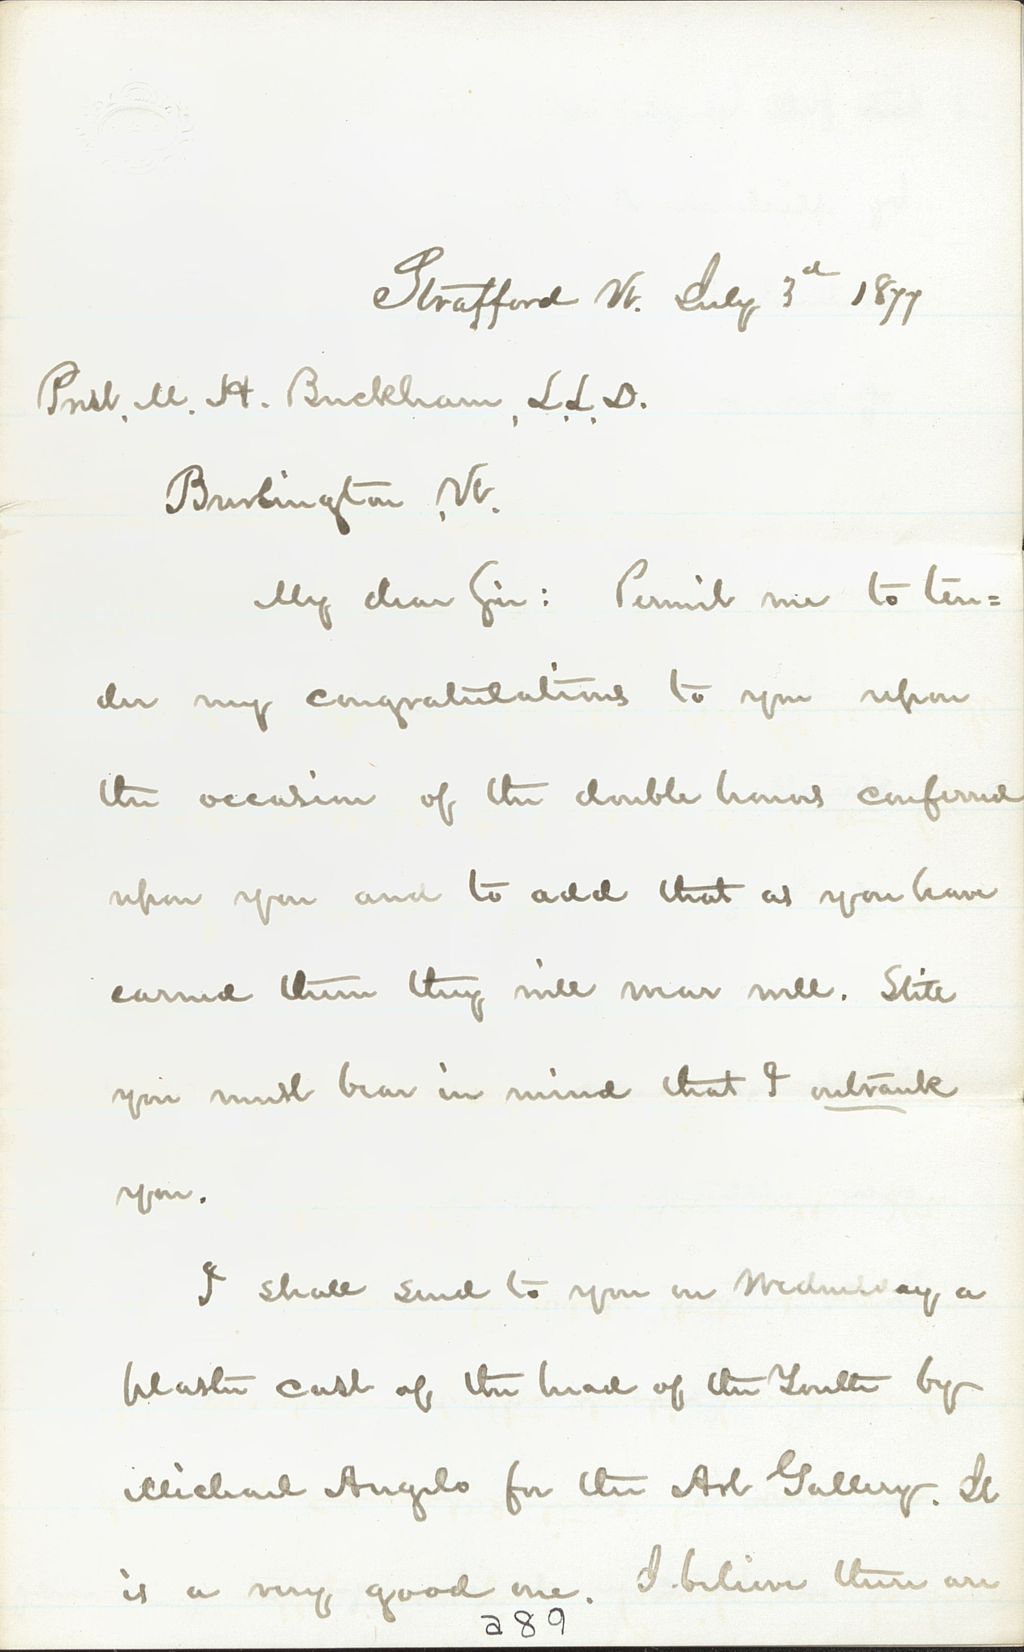 Strafford Vt. July 3d 1877
Prest. M. H. Buckham, L.L.D.
Burlington, Vt.
My dear Sir: Permit me to ten=
der my congratulations to you upon
the occasion of the double honors conferred
upon you and to add that as you have
earned them they will wear well. Still
you must bear in mind that I outrank
you.
I shall send to you on Wednesday a
plaster cast of the head of the Youth by
Michael Angelo for the Art Gallery. It
is a very good one. I believe there are
a89